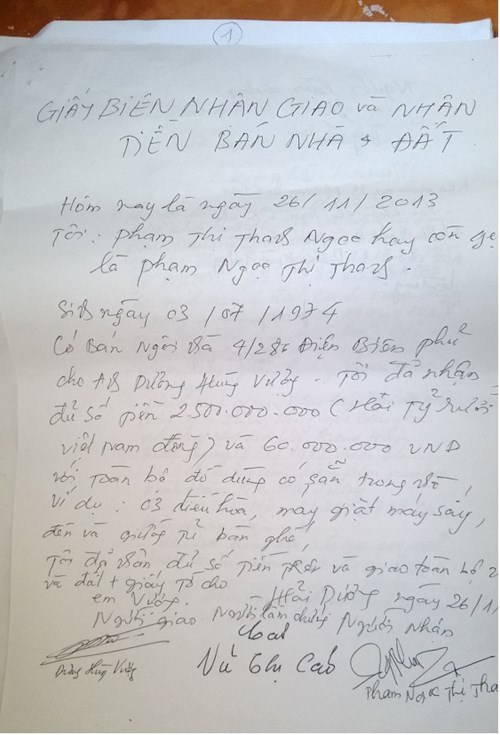 1
GIẤY BIÊN NHẬN GIAO và NHẬN
TIỀN BÁN NHÀ & ĐẤT
Hôm nay là ngày 26/11/2013
Tôi: Phạm Thị Thanh Ngọc hay còn gọi
là Phạm Ngọc Thị Thanh.
Sinh ngày 03/07/1974
Có bán Ngôi nhà 4/286 Điện Biên phủ
cho Anh Dương Hùng Vương. Tôi đã nhận
đủ số tiền 2500.000.000 (Hai Tỷ rưỡi
việt Nam đồng) và 60.000.000 VND
với toàn bộ đồ dùng có sẵn trong nhà,
ví dụ: 03 điều hòa, máy giặt máy sấy,
đèn và giường tủ bàn ghế,
Tôi đã nhận đủ số tiền trên và giao toàn bộ
và đất + giấy tờ cho
em Vương. Hải Dương ngày 26/1
Người giao Người làm chứng Người Nhận
Dương Hùng Vương Vũ Thị Cab Phạm Ngọc Thị Tha